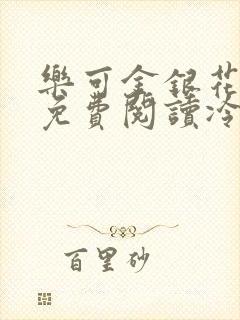 樂可金銀花
免費閱讀冷
百里砂